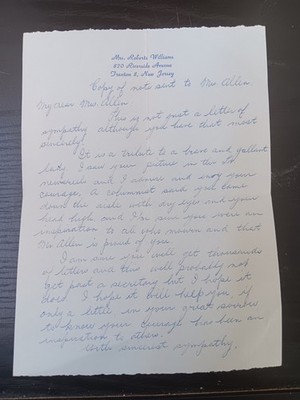 Mrs. Roberts Williams
820 Riverside Avenue
Trenton 8, New Jersey
Copy of note sent to Mrs Allen
My dear Mrs. Allen
This is not just a letter of
sympathy although you have that most
sincerely.
It is a tribute to a brave and gallant
lady. I saw your picture in the
and I admire and envy your
courage. A columnist said you came
down the aisle with dry eyes and your
head high and I'm sure you were an
inspiration to all who and that
Mr Allen is proud of you.
I am sure you will get thousands
of letters and this will probably not
get past a secretary but I hope it
does. I hope it will help you if
only a little in your great sorrow
to know your courage has been an
inspiration to others.
With sincerest sympathy,